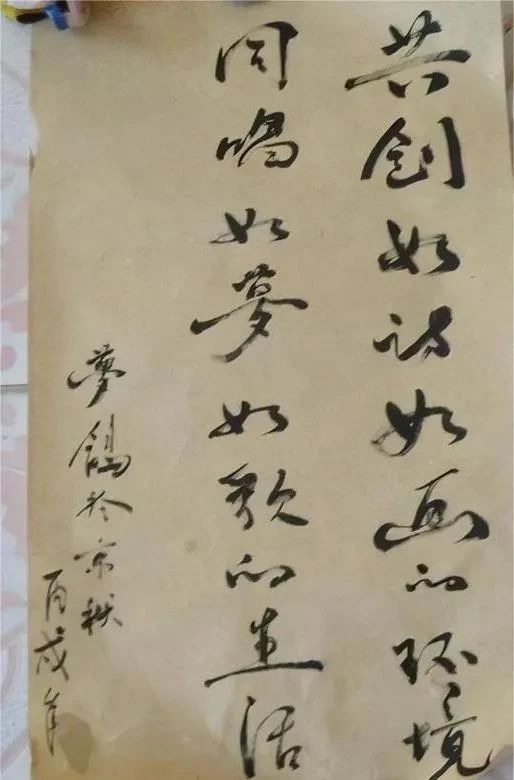 共创如诗如画的环境
同唱如梦如歌的生活
梦鸽於京秋
丙戌年